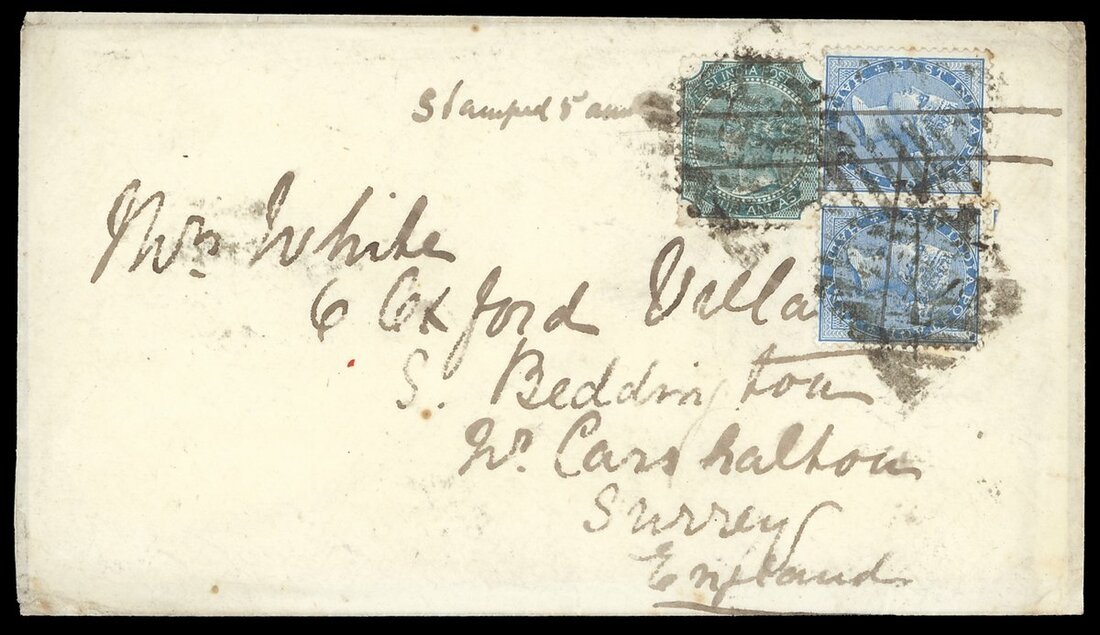 Stamped 5
EAST INDIA POSTAGE
EAST INDIA POSTAGE
HALF
EAST INDIA PO
HALF
Mrs White
6 Oxford Villa
S. Beddington
Nr. Carshalton
Surrey
England